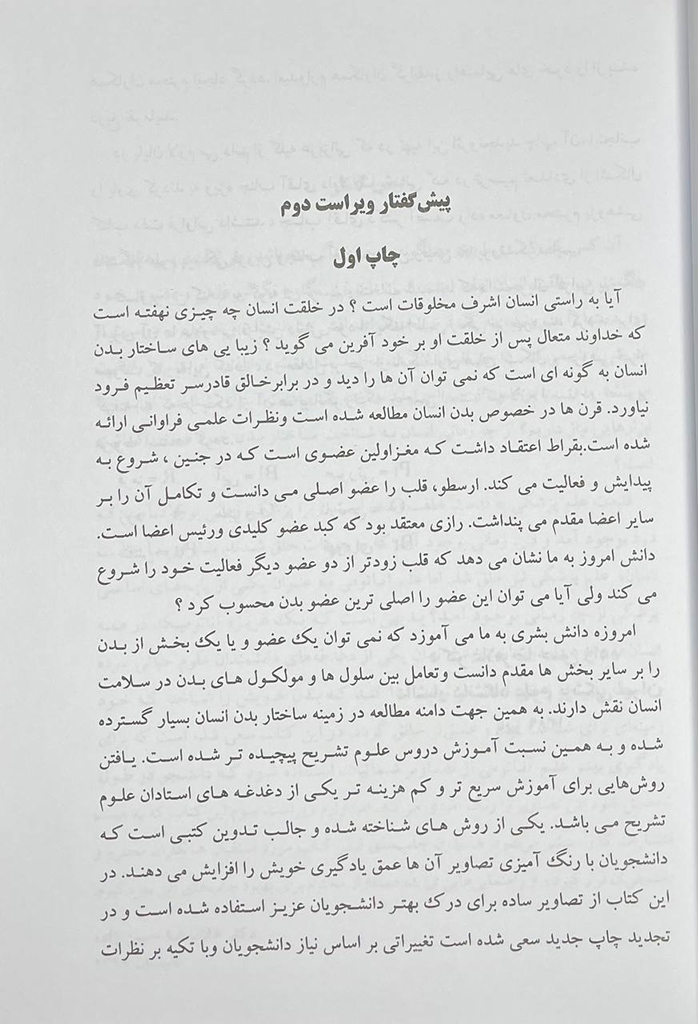 پیش‌گفتار ویراست دوم
چاپ اول
آیا به راستی انسان اشرف مخلوقات است ؟ در خلقت انسان چه چیزی نهفته است
که خداوند متعال پس از خلقت او بر خود آفرین می گوید ؟ زیبا یی های ساختار بدن
انسان به گونه ای است که نمی توان آن ها را دید و در برابرخالق قادرسر تعظیم فرود
نیاورد. قرن ها در خصوص بدن انسان مطالعه شده است ونظرات علمی فراوانی ارائه
شده است.بقراط اعتقاد داشت که مغزاولین عضوی است که در جنین ، شروع به
پیدایش و فعالیت می کند. ارسطو، قلب را عضو اصلی می دانست و تکامل آن را بر
سایر اعضا مقدم می پنداشت. رازی معتقد بود که کبد عضو کلیدی ورئیس اعضا است.
دانش امروز به ما نشان می دهد که قلب زودتر از دو عضو دیگر فعالیت خود را شروع
می کند ولی آیا می توان این عضو را اصلی ترین عضو بدن محسوب کرد ؟
امروزه دانش بشری به ما می آموزد که نمی توان یک عضو و یا یک بخش از بدن
را بر سایر بخش ها مقدم دانست وتعامل بین سلول ها و مولکول های بدن در سلامت
انسان نقش دارند. به همین جهت دامنه مطالعه در زمینه ساختار بدن انسان بسیار گسترده
شده و به همین نسبت آموزش دروس علوم تشریح پیچیده تر شده است. یافتن
روش‌هایی برای آموزش سریع تر و کم هزینه تر یکی از دغدغه های استادان علوم
تشریح می باشد. یکی از روش های شناخته شده و جالب تدوین کتبی است که
دانشجویان با رنگ آمیزی تصاویر آن ها عمق یادگیری خویش را افزایش می دهند. در
این کتاب از تصاویر ساده برای درک بهتر دانشجویان عزیز استفاده شده است و در
تجدید چاپ جدید سعی شده است تغییراتی بر اساس نیاز دانشجویان وبا تکیه بر نظرات